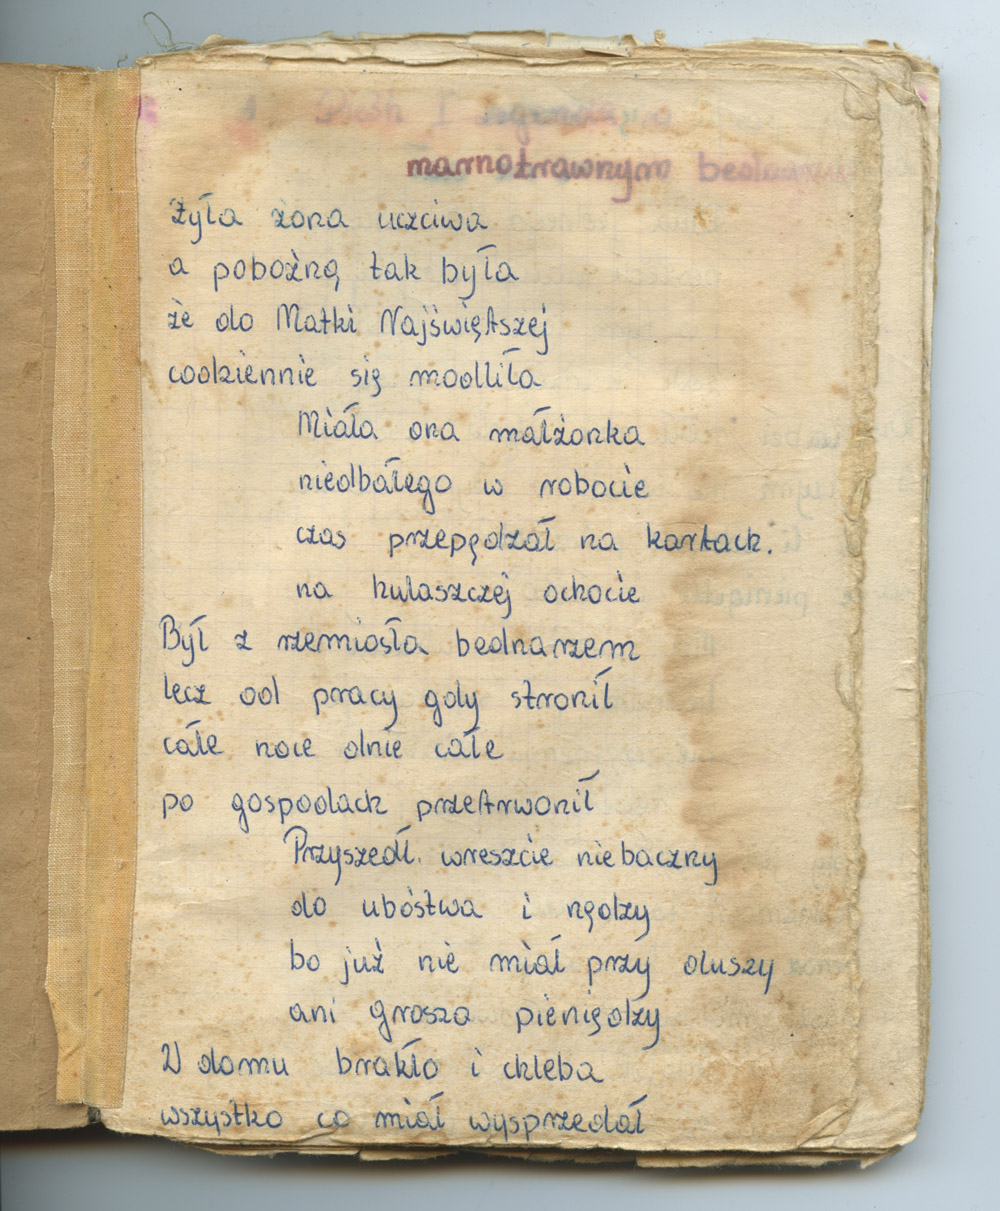 marnotrawnym bednarzu
Żyła żona uczciwa
a pobożną tak była
że do Matki Najświętszej
codziennie się modliła
Miała ona małżonka
niedbałego w robocie
czas przepędzał na kartach.
na hulaszczej ochocie
Był z rzemiosła bednarzem
lecz od pracy gdy stronił
całe noce dnie całe
po gospodach przetrwonił
Przyszedł. wreszcie niebaczny
do ubóstwa i nędzy
bo już nie miał przy duszy
ani grosza pieniędzy
W domu brakło i chleba
wszystko co miał wysprzedał